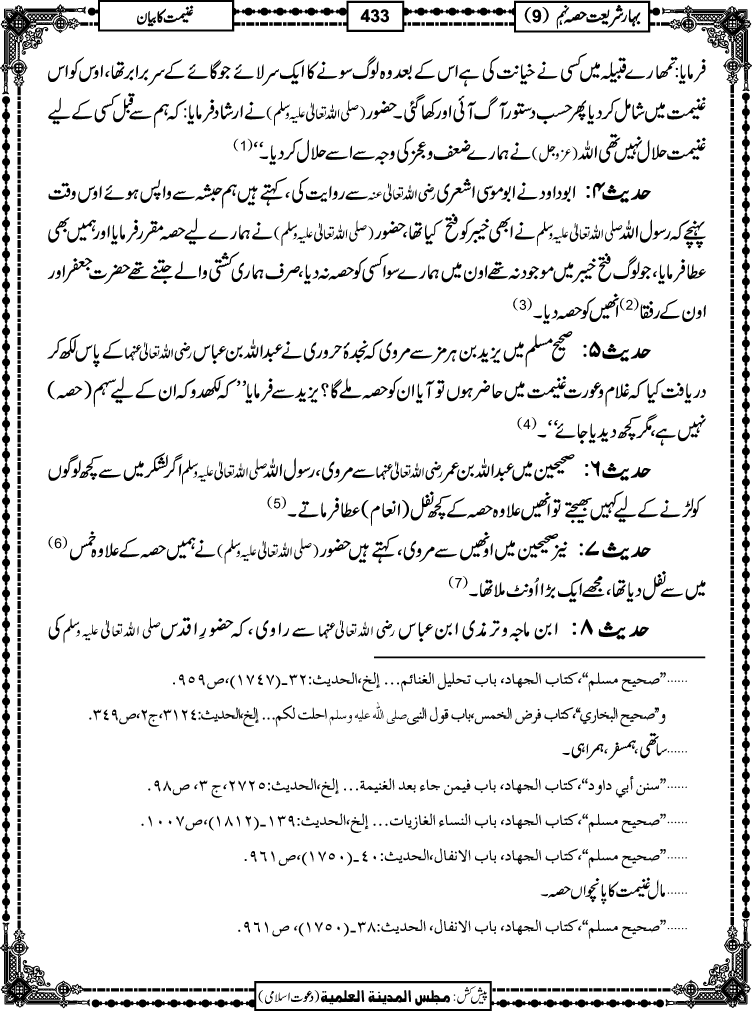 بہارِ شریعت حصہ نہم (9)
433
غنیمت کا بیان
فرمایا: تمھارے قبیلہ میں کسی نے خیانت کی ہے اس کے بعد وہ لوگ سونے کا ایک سر لائے جو گائے کے سر برابر تھا، اوس کو اس
غنیمت میں شامل کر دیا پھر حسب دستور آگ آئی اور کھا گئی۔ حضور (صلی اللہ تعالیٰ علیہ وسلم) نے ارشاد فرمایا: کہ ہم سے قبل کسی کے لیے
غنیمت حلال نہیں تھی اللہ (عزوجل) نے ہمارے ضعف و عجز کی وجہ سے اسے حلال کر دیا۔‘‘ (1)
حدیث ۴: ابوداود نے ابوموسی اشعری رضی اللہ تعالیٰ عنہ سے روایت کی، کہتے ہیں ہم حبشہ سے واپس ہوئے اوس وقت
پہنچے کہ رسول اللہ صلی اللہ تعالیٰ علیہ وسلم نے ابھی خیبر کو فتح کیا تھا، حضور (صلی اللہ تعالیٰ علیہ وسلم) نے ہمارے لیے حصہ مقرر فرمایا اور ہمیں بھی
عطا فرمایا، جو لوگ فتح خیبر میں موجود نہ تھے اون میں ہمارے سوا کسی کو حصہ نہ دیا، صرف ہماری کشتی والے جتنے تھے حضرت جعفر اور
اون کے رفقا (2) انھیں کو حصہ دیا۔ (3)
حدیث ۵: صحیح مسلم میں یزید بن ہرمز سے مروی کہ نجدۂ حروری نے عبداللہ بن عباس رضی اللہ تعالیٰ عنہما کے پاس لکھ کر
دریافت کیا کہ غلام و عورت غنیمت میں حاضر ہوں تو آیا ان کو حصہ ملے گا؟ یزید سے فرمایا ’’کہ لکھ دو کہ ان کے لیے سہم (حصہ)
نہیں ہے، مگر کچھ دیدیا جائے‘‘۔ (4)
حدیث ۶: صحیحین میں عبداللہ بن عمر رضی اللہ تعالیٰ عنہما سے مروی، رسول اللہ صلی اللہ تعالیٰ علیہ وسلم اگر لشکر میں سے کچھ لوگوں
کو لڑنے کے لیے کہیں بھیجتے تو انھیں علاوہ حصہ کے کچھ نفل (انعام) عطا فرماتے۔ (5)
حدیث ۷: نیز صحیحین میں اونھیں سے مروی، کہتے ہیں حضور (صلی اللہ تعالیٰ علیہ وسلم) نے ہمیں حصہ کے علاوہ خمس (6)
میں سے نفل دیا تھا، مجھے ایک بڑا اُونٹ ملا تھا۔ (7)
حدیث ۸: ابن ماجہ و ترمذی ابن عباس رضی اللہ تعالیٰ عنہما سے راوی، کہ حضورِ اقدس صلی اللہ تعالیٰ علیہ وسلم کی
......’’صحیح مسلم‘‘، کتاب الجهاد، باب تحلیل الغنائم... إلخ، الحدیث: ۳۲۔(۱۷۴۷)، ص۹۵۹.
و’’صحیح البخاري‘‘، کتاب فرض الخمس، باب قول النبی صلی اللہ علیہ وسلم احلت لکم... إلخ، الحدیث: ۳۱۲۴، ج۲، ص۳۴۹.
......ساتھی، ہمسفر، ہمراہی۔
......’’سنن أبي داود‘‘، کتاب الجهاد، باب فیمن جاء بعد الغنیمة... إلخ، الحدیث: ۲۷۲۵، ج ۳، ص۹۸.
......’’صحیح مسلم‘‘، کتاب الجهاد، باب النساء الغازیات... إلخ، الحدیث: ۱۳۹۔(۱۸۱۲)، ص۱۰۰۷.
......’’صحیح مسلم‘‘، کتاب الجهاد، باب الانفال، الحدیث: ۴۰۔(۱۷۵۰)، ص۹۶۱.
......مال غنیمت کا پانچواں حصہ۔
......’’صحیح مسلم‘‘، کتاب الجهاد، باب الانفال، الحدیث: ۳۸۔(۱۷۵۰)، ص۹۶۱.
پیش کش: مجلس المدینة العلمیة (دعوت اسلامی)